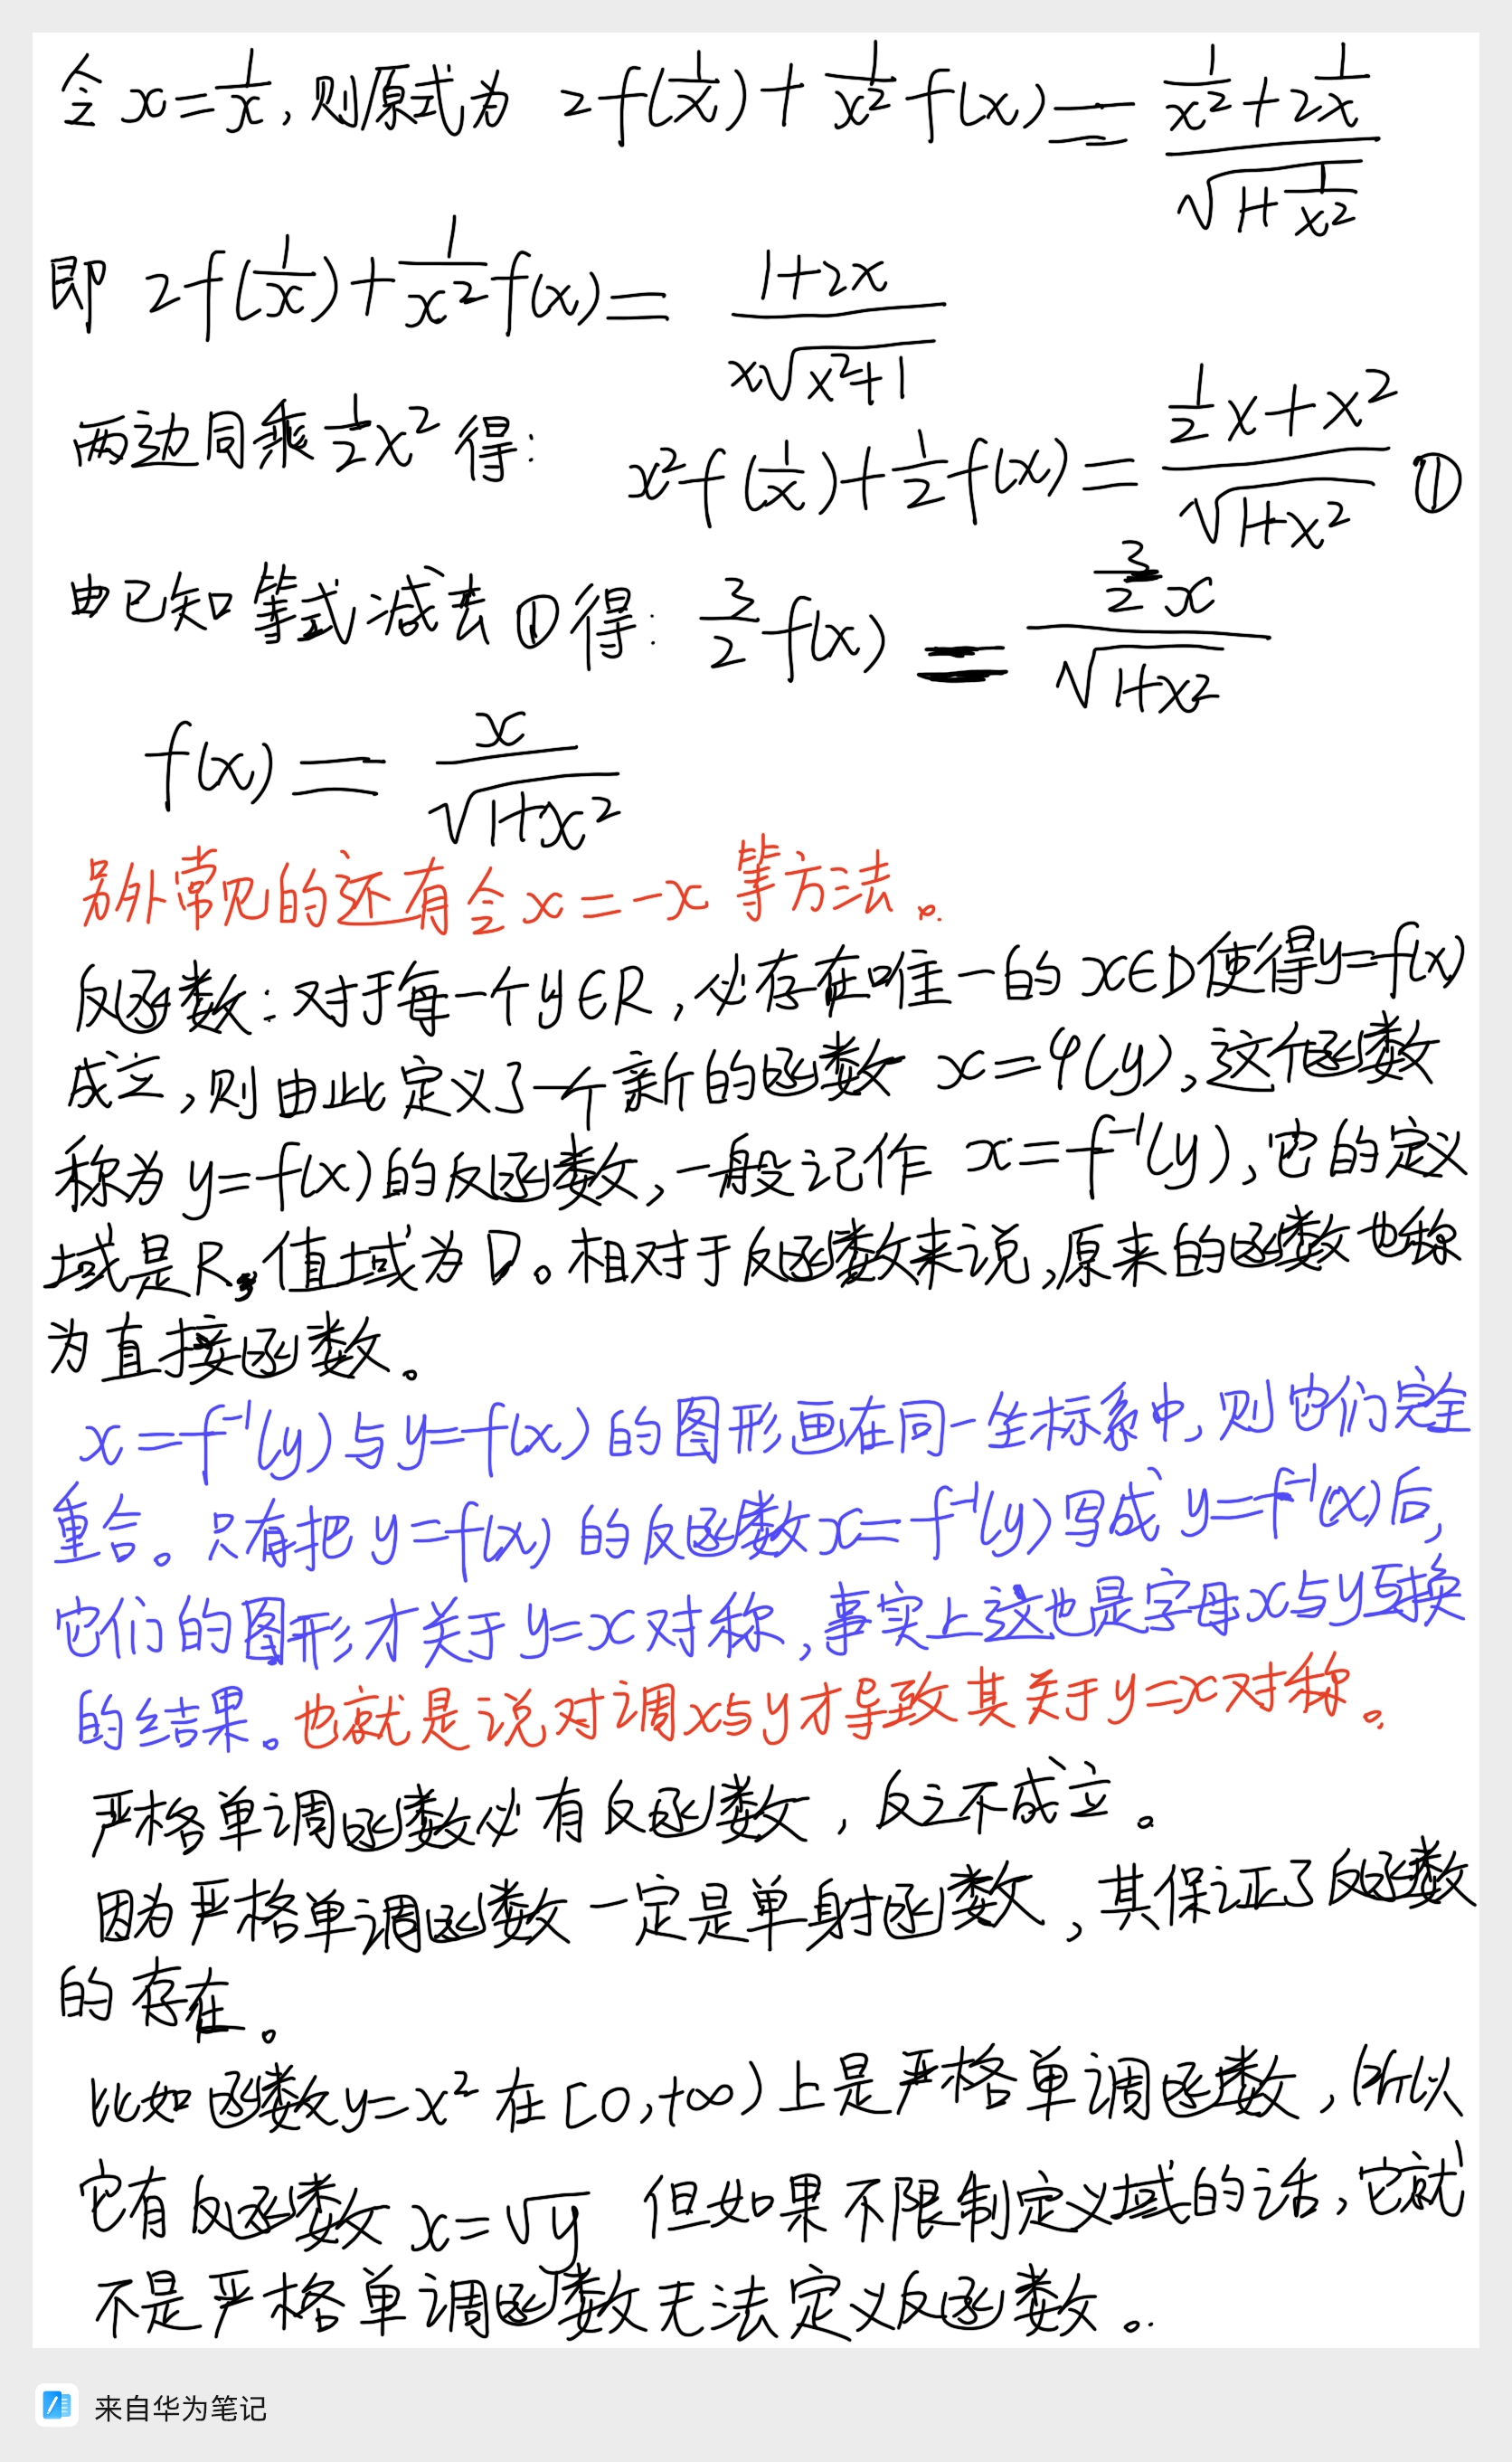 令 x=1/x, 则原式为 2f(1/x)+1/x² f(x)=(1/x²+2 1/x)/√(1+1/x²)
即 2f(1/x)+1/x² f(x)=(1+2x)/(x√(x²+1))
两边同乘 1/2 x² 得: x²f(1/x)+1/2 f(x)=(1/2 x+x²)/√(1+x²) ①
由已知等式减去①得: 3/2 f(x)=(3/2 x)/√(1+x²)
f(x)=x/√(1+x²)
另外常见的还有令 x=-x 等方法。
反函数:对于每一个y∈R,必存在唯一的x∈D使得y=f(x)
成立,则由此定义了一个新的函数 x=φ(y),这个函数
称为 y=f(x)的反函数,一般记作 x=f⁻¹(y),它的定义
域是R,值域为D。相对于反函数来说,原来的函数也称
为直接函数。
x=f⁻¹(y)与y=f(x)的图形画在同一坐标系中,则它们完全
重合。只有把 y=f(x) 的反函数x=f⁻¹(y)写成 y=f⁻¹(x)后,
它们的图形才关于y=x对称,事实上这也是字母x与y互换
的结果。也就是说对调x与y才导致其关于y=x对称。
严格单调函数必有反函数,反之不成立。
因为严格单调函数一定是单射函数,其保证了反函数
的存在。
比如函数y=x²在[0,+∞)上是严格单调函数,所以
它有反函数 x=√y 但如果不限制定义域的话,它就
不是严格单调函数无法定义反函数。
来自华为笔记